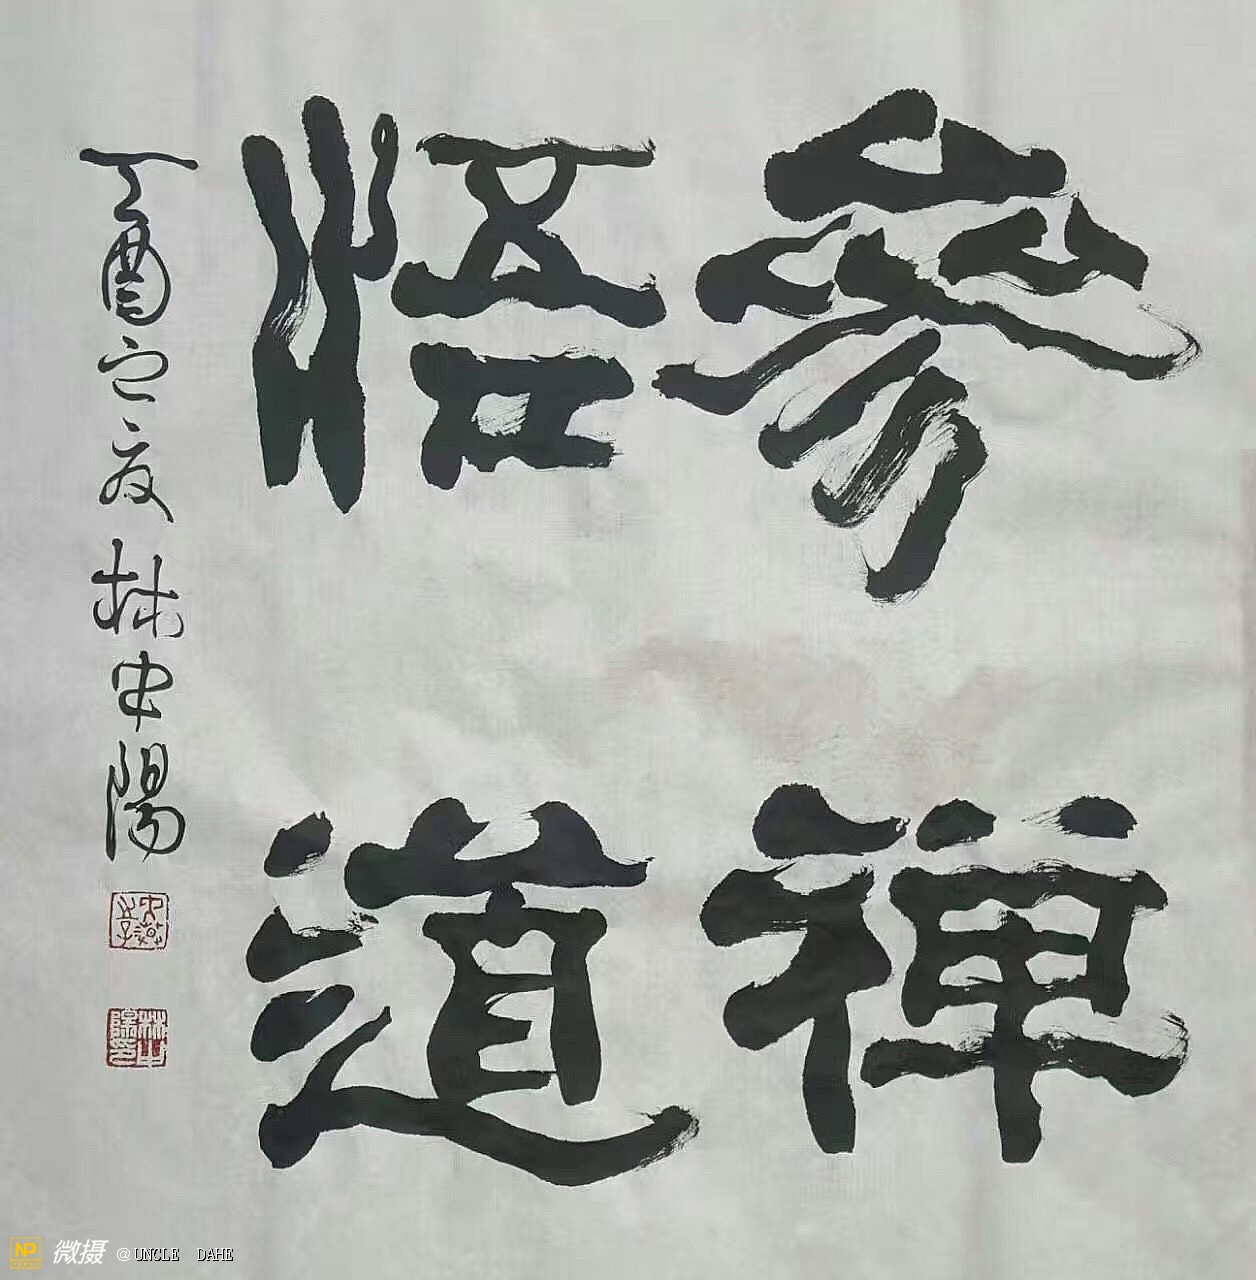 參禪
悟道
丁酉之夏林中陽
林中
陽印
NP 微摄 @UNCLE DAHE